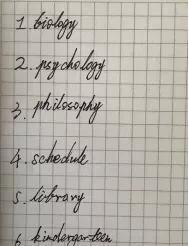 1. biology
2. psychology
3. philosophy
4. schedule
5. library
6. kindergarteen